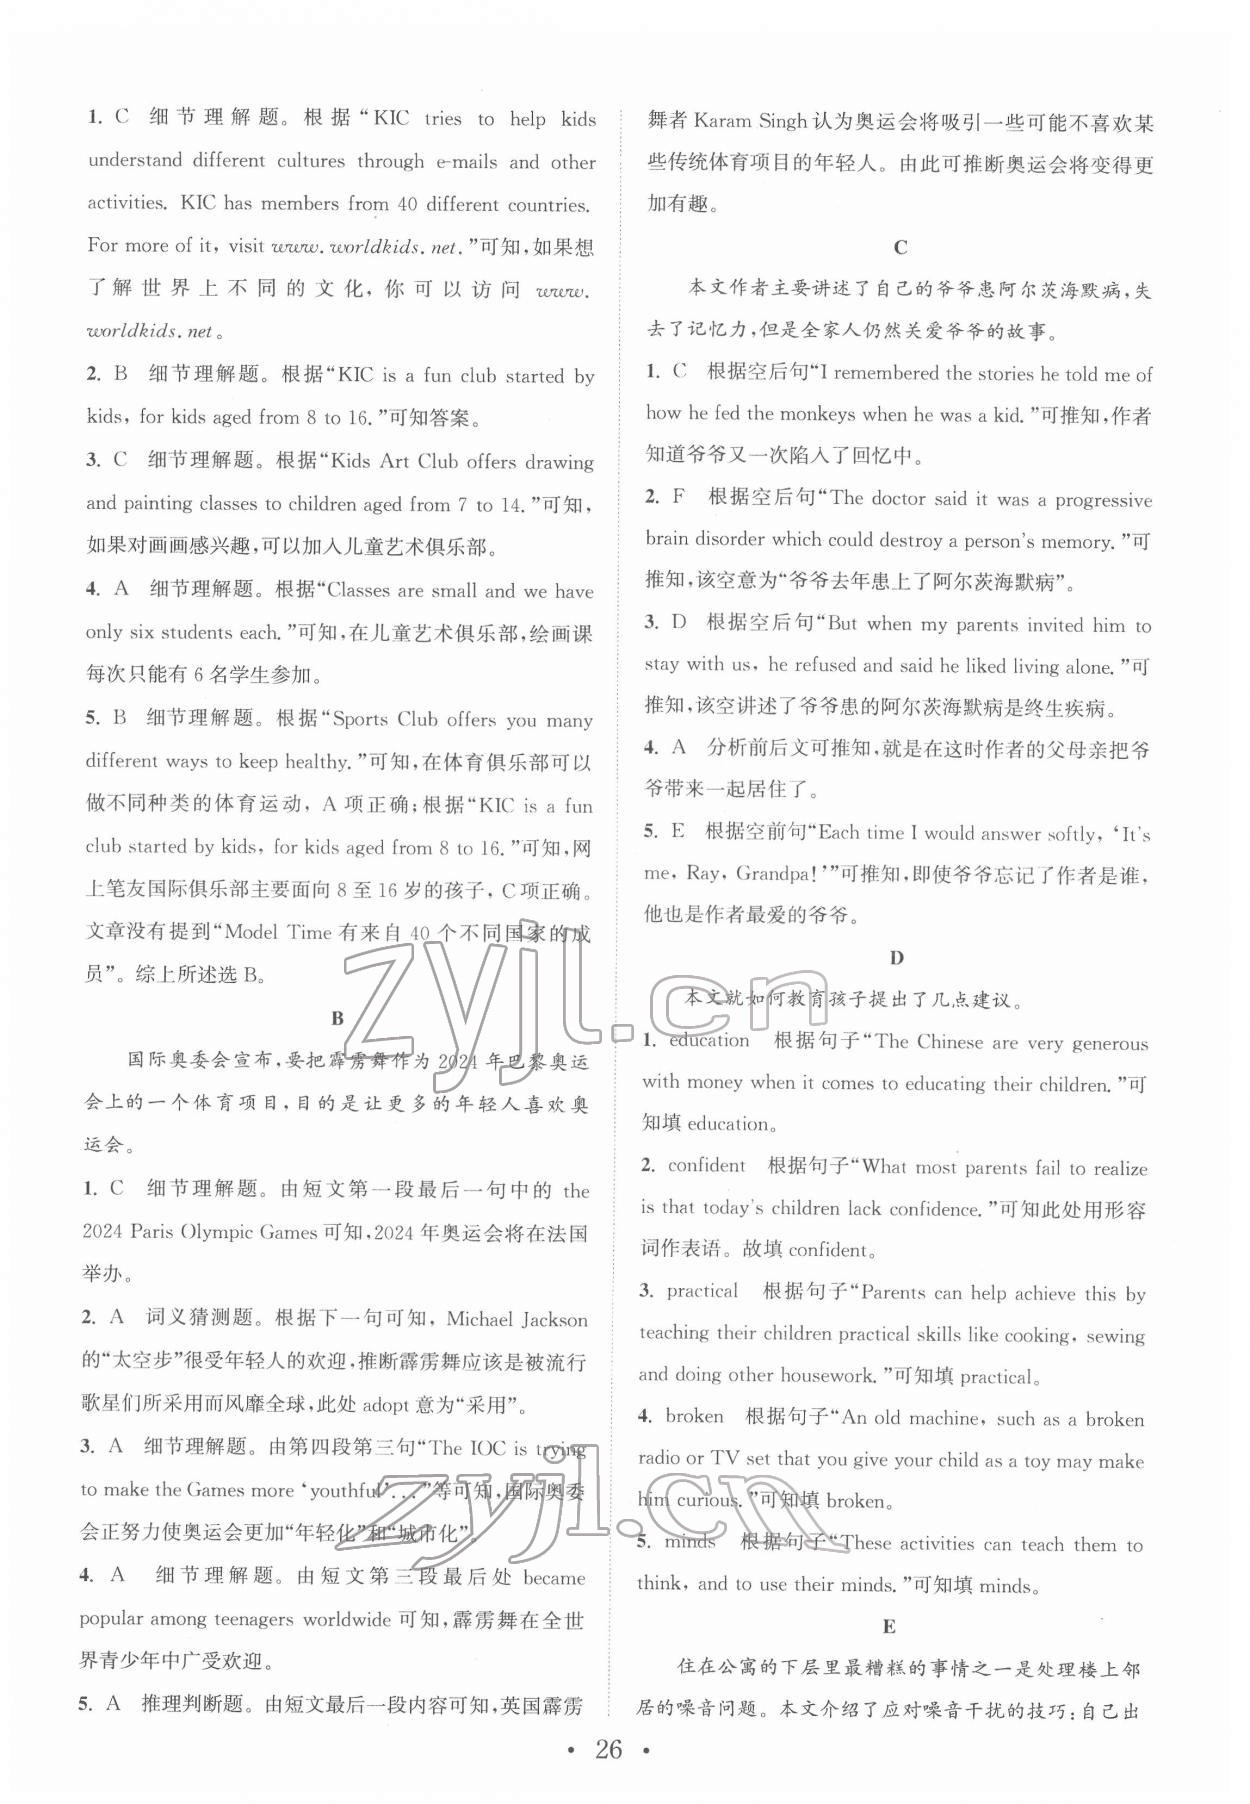 1. C 细节理解题。根据“KIC tries to help kids
understand different cultures through e-mails and other
activities. KIC has members from 40 different countries.
For more of it, visit www.worldkids.net.”可知,如果想
了解世界上不同的文化,你可以访问 www.
worldkids.net。
2. B 细节理解题。根据“KIC is a fun club started by
kids, for kids aged from 8 to 16.”可知答案。
3. C 细节理解题。根据“Kids Art Club offers drawing
and painting classes to children aged from 7 to 14.”可知,
如果对画画感兴趣,可以加入儿童艺术俱乐部。
4. A 细节理解题。根据“Classes are small and we have
only six students each.”可知,在儿童艺术俱乐部,绘画课
每次只能有 6 名学生参加。
5. B 细节理解题。根据“Sports Club offers you many
different ways to keep healthy.”可知,在体育俱乐部可以
做不同种类的体育运动, A 项正确;根据“KIC is a fun
club started by kids, for kids aged from 8 to 16.”可知,网
上笔友国际俱乐部主要面向 8 至 16 岁的孩子, C 项正确。
文章没有提到“Model Time 有来自 40 个不同国家的成
员”。综上所述选 B。
B
国际奥委会宣布,要把霹雳舞作为 2024 年巴黎奥运
会上的一个体育项目,目的是让更多的年轻人喜欢奥
运会。
1. C 细节理解题。由短文第一段最后一句中的 the
2024 Paris Olympic Games 可知,2024 年奥运会将在法国
举办。
2. A 词义猜测题。根据下一句可知, Michael Jackson
的“太空步”很受年轻人的欢迎,推断霹雳舞应该是被流行
歌星们所采用而风靡全球,此处 adopt 意为“采用”。
3. A 细节理解题。由第四段第三句“The IOC is trying
to make the Games more ‘youthful’...”等可知,国际奥委
会正努力使奥运会更加“年轻化”和“城市化”。
4. A 细节理解题。由短文第三段最后处 became
popular among teenagers worldwide 可知,霹雳舞在全世
界青少年中广受欢迎。
5. A 推理判断题。由短文最后一段内容可知,英国霹雳
舞者 Karam Singh 认为奥运会将吸引一些可能不喜欢某
些传统体育项目的年轻人。由此可推断奥运会将变得更
加有趣。
C
本文作者主要讲述了自己的爷爷患阿尔茨海默病,失
去了记忆力,但是全家人仍然关爱爷爷的故事。
1. C 根据空后句“I remembered the stories he told me of
how he fed the monkeys when he was a kid.”可推知,作者
知道爷爷又一次陷入了回忆中。
2. F 根据空后句“The doctor said it was a progressive
brain disorder which could destroy a person's memory.”可
推知,该空意为“爷爷去年患上了阿尔茨海默病”。
3. D 根据空后句“But when my parents invited him to
stay with us, he refused and said he liked living alone.”可
推知,该空讲述了爷爷患的阿尔茨海默病是终生疾病。
4. A 分析前后文可推知,就是在这时作者的父母亲把爷
爷带来一起居住了。
5. E 根据空前句“Each time I would answer softly, ‘It's
me, Ray, Grandpa!’”可推知,即使爷爷忘记了作者是谁,
他也是作者最爱的爷爷。
D
本文就如何教育孩子提出了几点建议。
1. education 根据句子“The Chinese are very generous
with money when it comes to educating their children.”可
知填 education。
2. confident 根据句子“What most parents fail to realize
is that today's children lack confidence.”可知此处用形容
词作表语。故填 confident。
3. practical 根据句子“Parents can help achieve this by
teaching their children practical skills like cooking, sewing
and doing other housework.”可知填 practical。
4. broken 根据句子“An old machine, such as a broken
radio or TV set that you give your child as a toy may make
him curious.”可知填 broken。
5. minds 根据句子“These activities can teach them to
think, and to use their minds.”可知填 minds。
E
住在公寓的下层里最糟糕的事情之一是处理楼上邻
居的噪音问题。本文介绍了应对噪音干扰的技巧:自己出
• 26 •
zyjl.cn
zyjl.cn